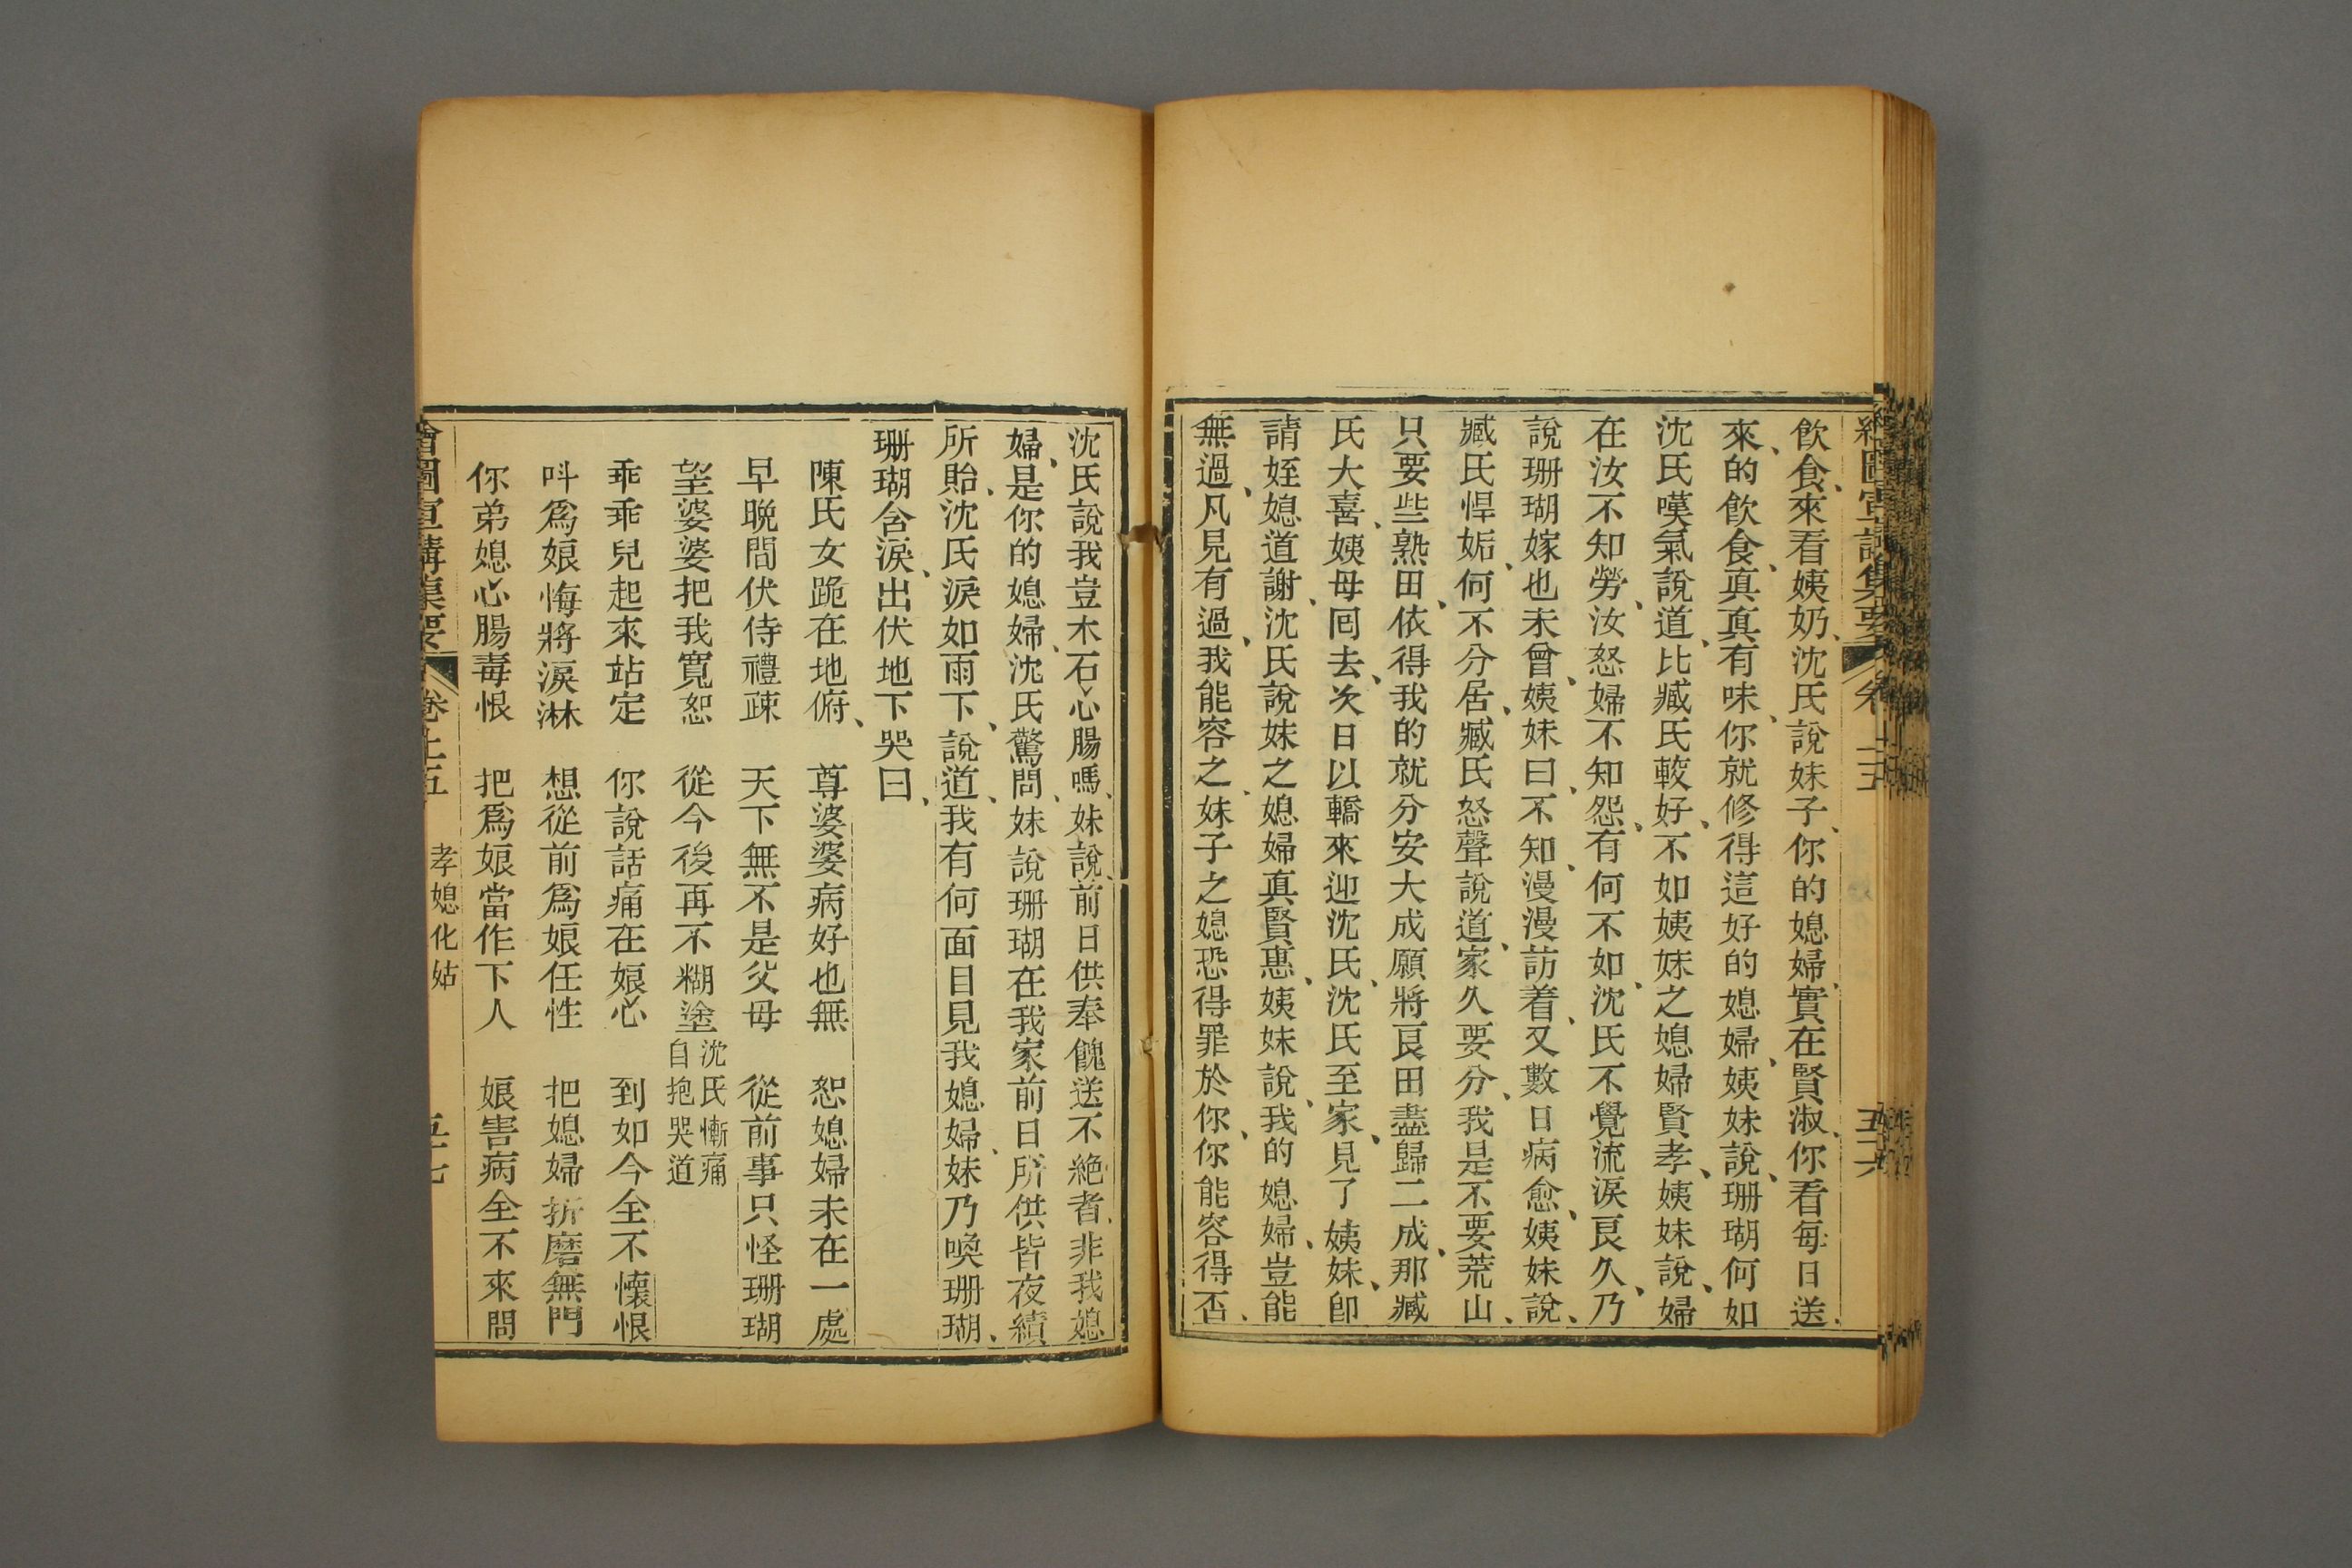 飲食、來看姨奶、沈氏說妹子、你的媳婦、實在賢淑、你看每日送、
來、的飲食、眞眞有味、你就修得這好的媳婦、姨妹說、珊瑚何如
沈氏嘆氣說道、比臧氏較好、不如姨妹之媳婦賢孝、姨妹說、婦
在汝不知勞、汝怒婦不知怨、有何不如、沈氏不覺流淚良久、乃
說珊瑚嫁也未曾、姨妹曰、不知、漫漫訪着、又數日病愈、姨妹說、
臧氏悍妬、何不分居、臧氏怒聲說道、家久要分、我是不要荒山、
只要些熟田、依得我的就分安大成願將良田盡歸二成、那臧
氏大喜、姨母囘去、次日以轎來迎沈氏、沈氏至家、見了姨妹、卽
請姪媳道謝、沈氏說妹之媳婦眞賢惠、姨妹說、我的媳婦、豈能
無過、凡見有過、我能容之、妹子之媳恐得罪於你、你能容得否、
沈氏說我豈木石心腸嗎、妹說、前日供奉餽送不絕者、非我媳
婦、是你的媳婦、沈氏驚問、妹說珊瑚在我家前日所供皆夜績
所貽、沈氏淚如雨下、說道、我有何面目見我媳婦、妹乃喚珊瑚、
珊瑚含淚、出伏地下哭曰、
陳氏女跪在地俯、尊婆婆病好也無 恕媳婦未在一處
早晚間伏侍禮疎 天下無不是父母 從前事只怪珊瑚
望婆婆把我寬恕 從今後再不糊塗 沈氏慚痛自抱哭道
乖乖兒起來站定 你說話痛在娘心 到如今全不懷恨
呌爲娘悔將淚淋 想從前爲娘任性 把媳婦折磨無門
你弟媳心腸毒恨 把爲娘當作下人 娘害病全不來問
會圖宣講集要 卷上五 孝媳化姑 五七